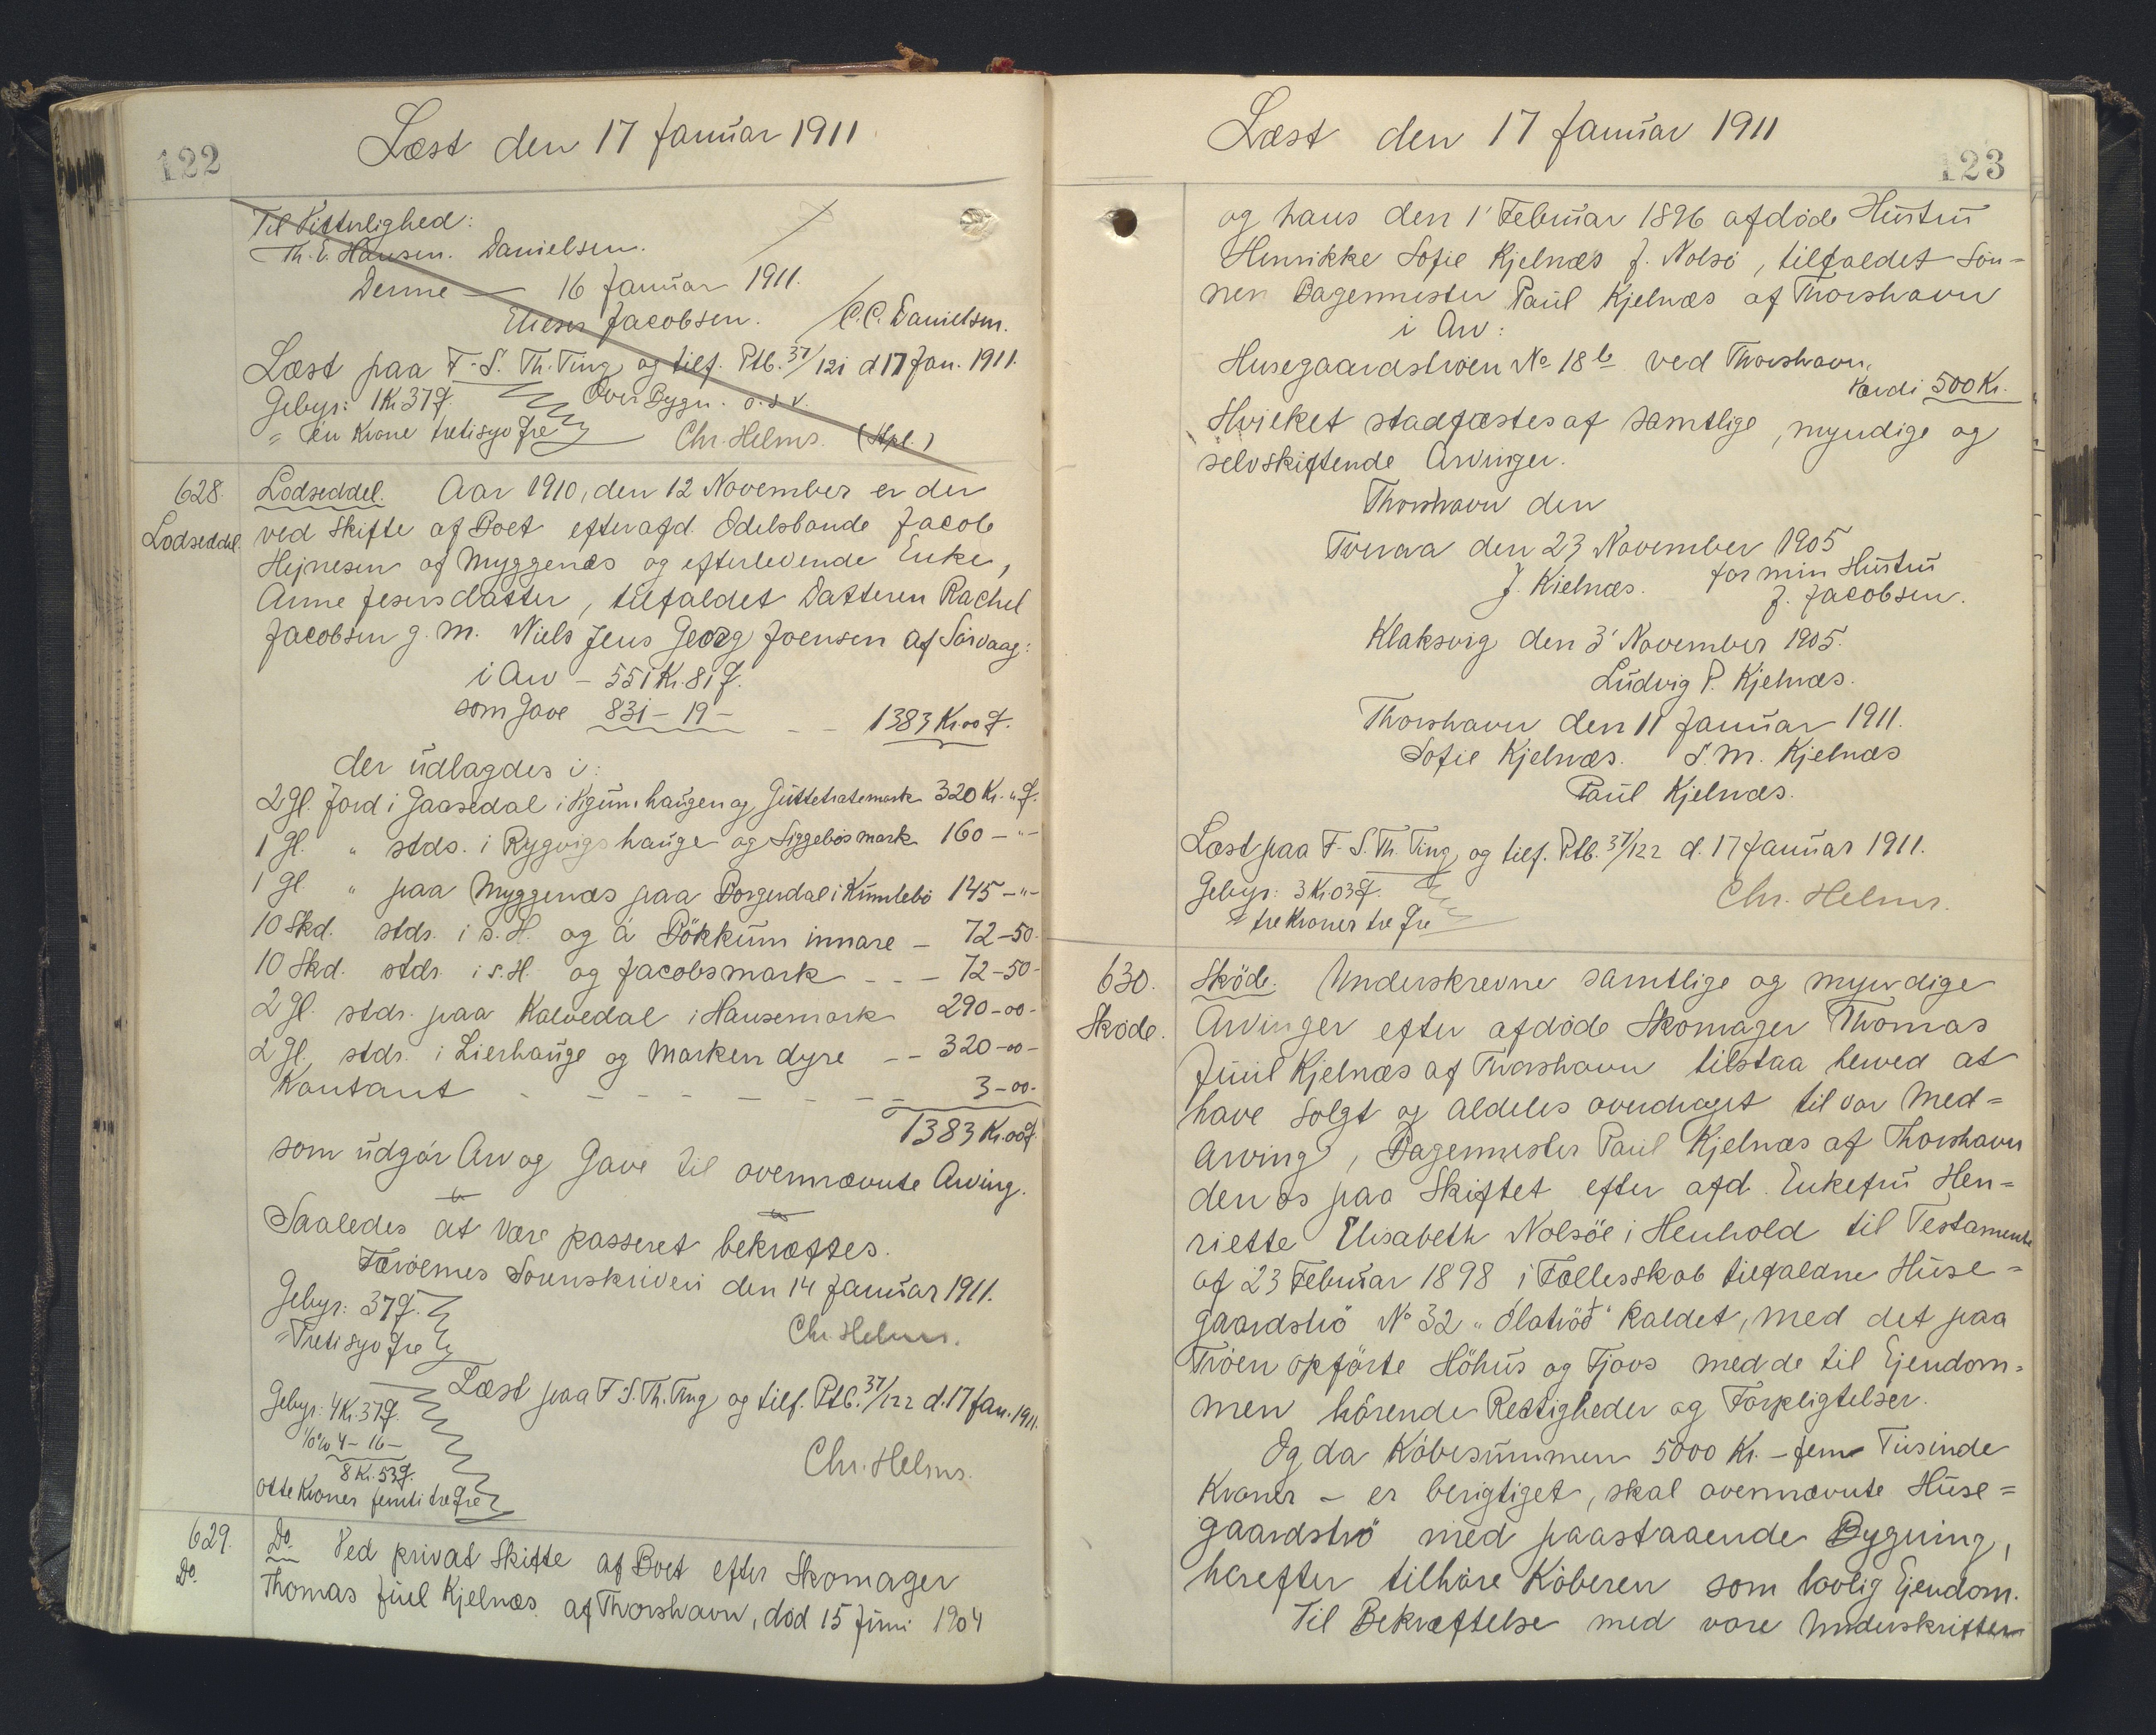 122
Læst den 17 Januar 1911
Til Vitterlighed:
Th. E. Hansen. Danielsen.
Denne — 16 Januar 1911.
Elieser Jacobsen. C.C. Danielsen.
Læst paa F.S. Th. Ting og tilf. Ptb. 37/121 d 17 Jan. 1911.
Gebyr: 1 Kr 37 Ø. Over Bygn. o.s.v.
= én Krone tretisyv Øre Chr. Helms. (Stpl.)
628. Lodseddel. Aar 1910, den 12 November er der
Lodseddel. ved Skifte af Boet efter afd. Odelsbonde Jacob
Hejnesen af Myggenæs og efterlevende Enke,
Anne Jensdatter, tilfaldet Datteren Rachel
Jacobsen g. m. Niels Jens Georg Joensen af Sörvaag:
i Arv – 551 Kr. 81 Ø.
som Gave 831 – 19 – – – 1383 Kr 00 Ø.
der udlagdes i:
2 Gl. Jord i Gaasedal i haugen og 320 Kr. " Ø.
1 Gl. " stds. i Rygvigshauge og Siggebösmark 160 – " –
1 Gl. " paa Myggenæs paa Borgardal i 145 – " –
10 Skd. stds. i s. H. og á Bökkum innare – 72 – 50 –
10 Skd. stds. i s. H. og Jacobsmark – – – 72 – 50 –
2 Gl. stds. paa Kalvedal i Hansemark 290 – 00 –
2 Gl. stds. i Lierhauge og Marken dyre – – 320 – 00 –
Kontant – – – – – – – – 3 – 00 –
1383 Kr. 00 Ø.
som udgör Arv og Gave til ovennævnte Arving.
Saaledes at være passeret bekræftes.
Færöernes Sorenskriveri den 14 Januar 1911.
Gebyr: 37 Ø.
= Tretisyv Øre Chr. Helms.
Læst paa F.S. Th. Ting og tilf. Ptb. 37/122 d. 17 Jan. 1911.
Gebyr: 4 Kr. 37 Ø.
4 – 16 –
8 Kr. 53 Ø. Chr. Helms.
Otte Kroner femti tre Øre
629. Do. Ved privat Skifte af Boet efter Skomager
Do. Thomas Juel Kjelnæs af Thorshavn, död 15 Juni 1904
Læst den 17 Januar 1911
123
og hans den 1' Februar 1896 afdöde Hustru
Henrikke Sofie Kjelnæs f. Nolsö, tilfaldet Sön=
nen Bagermester Paul Kjelnæs af Thorshavn
i Arv:
Husegaardströen No 18 b ved Thorshavn,
Værdi 500 Kr.
Hvilket stadfæstes af samtlige, myndige og
selvskiftende Arvinger.
Thorshavn den
Tveraa den 23 November 1905
J. Kjelnæs. for min Hustru
J. Jacobsen.
Klaksvig den 3' November 1905.
Ludvig P. Kjelnæs.
Thorshavn den 11 Januar 1911.
Sofie Kjelnæs. S. M. Kjelnæs
Paul Kjelnæs.
Læst paa F. S. Th. Ting og tilf. Ptb. 37/122 d. 17 Januar 1911.
Gebyr: 3 Kr 03 Ø.
= tre Kroner tre Øre Chr. Helms.
630. Sköde. Underskrevne samtlige og myndige
Sköde. Arvinger efter afdöde Skomager Thomas
Juul Kjelnæs af Thorshavn tilstaa herved at
have solgt og aldeles overdraget til vor Med=
arving, Bagermester Paul Kjelnæs af Thorshavn
den os paa Skiftet efter afd. Enkefru Hen=
riette Elisabeth Nolsöe i Henhold til Testamente
af 23 Februar 1898 i Fællesskab tilfaldne Huse=
gaardströ No 32 "Ólatröð" kaldet, med det paa
Tröen opförte Höhus og Fjoos med de til Ejendom=
men hörende Rettigheder og Forpligtelser.
Og da Köbesummen 5000 Kr. – fem Tusinde
Kroner – er berigtiget, skal ovennævnte Huse=
gaardströ med paastaaende Bygning,
herefter tilhöre Köberen som lovlig Ejendom.
Til Bekræftelse med vore Underskrifter